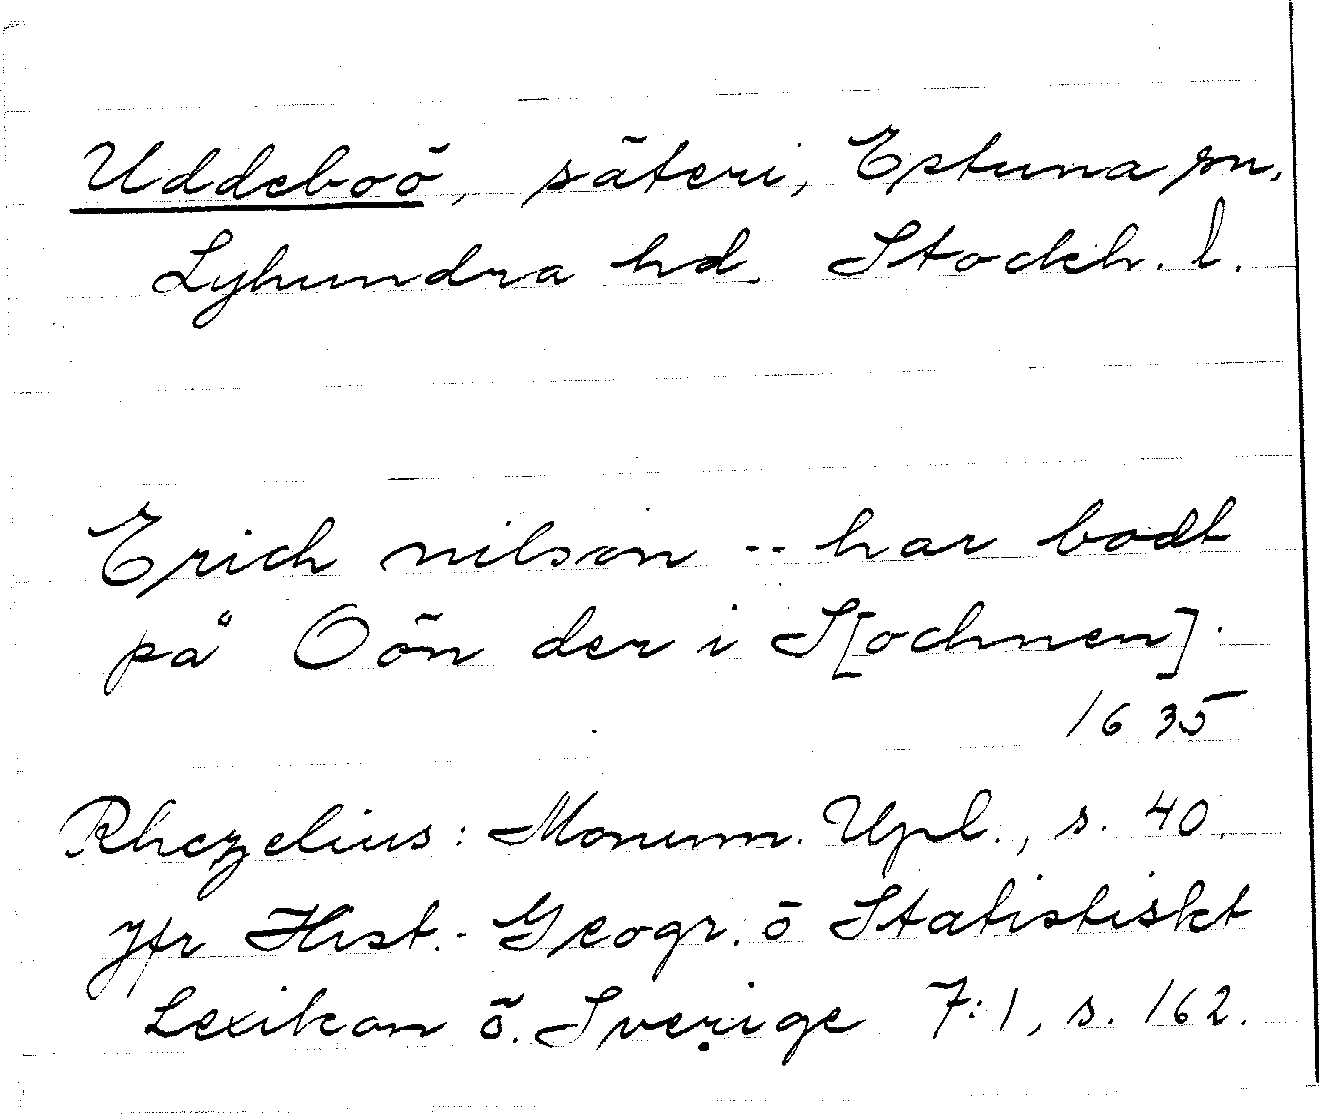 Uddeboö, säteri, Estuna sn,
Lyhundra hd. Stockh. l.
Erich nilson -- har bodt
på Oön der i S[ochnen].
1635
Rhezelius: Monum. Upl., s. 40.
Jfr Hist.- Geogr. o Statistiskt
Lexikon ö. Sverige 7:1, s. 162.